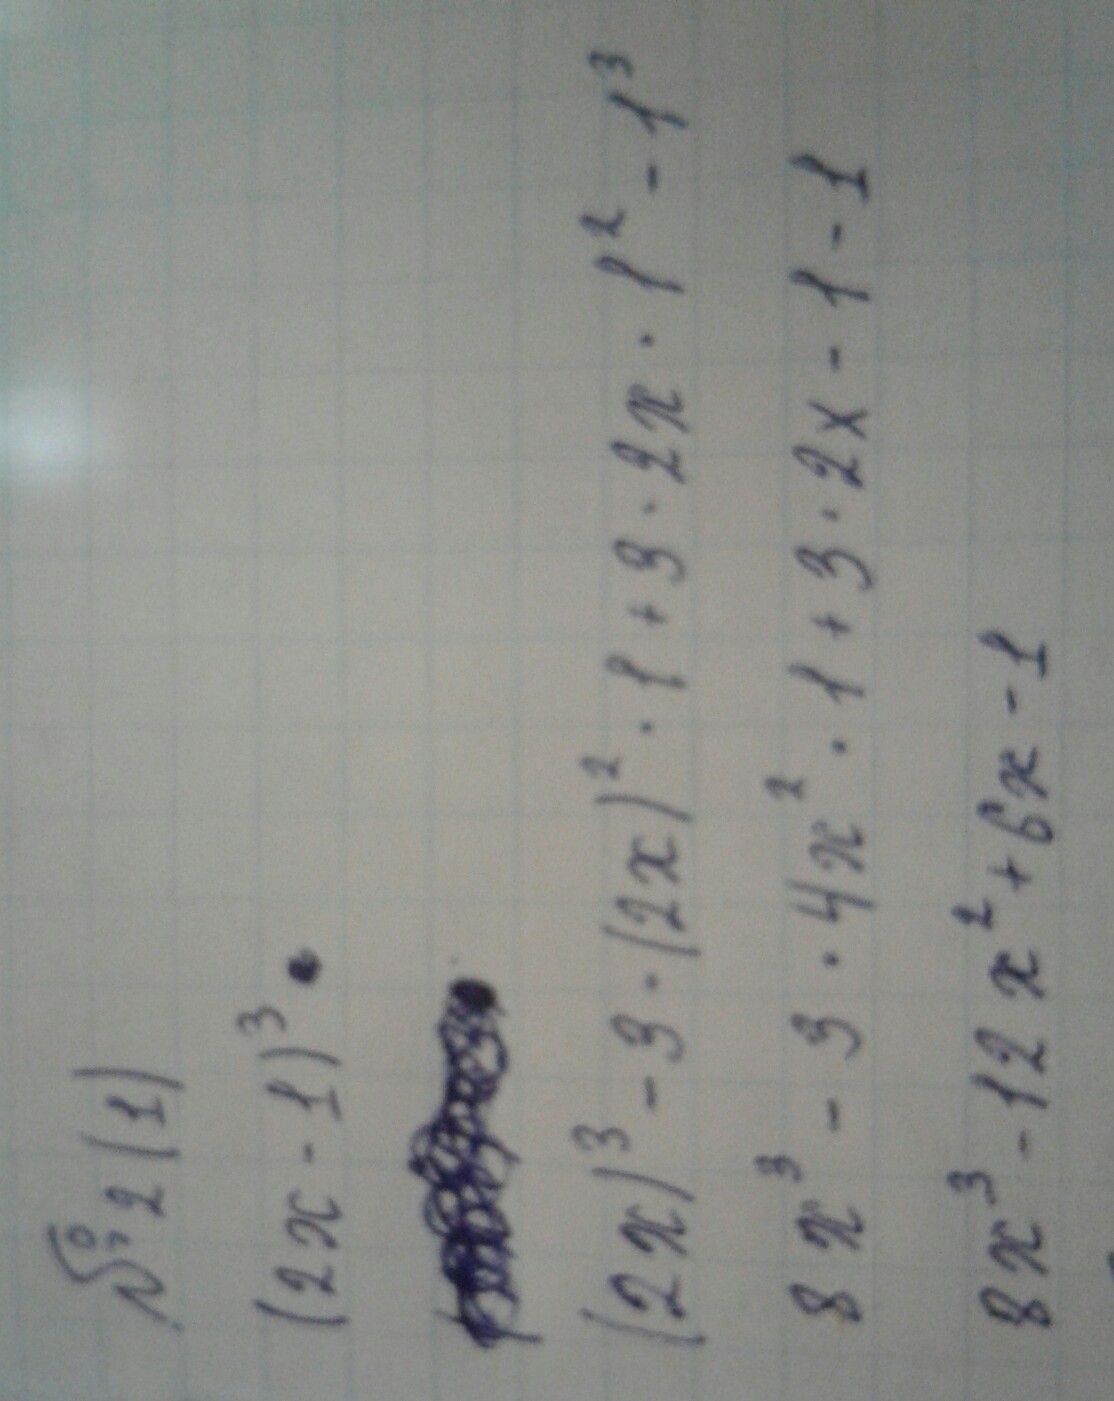 № 2 (1)
(2x - 1)³
(2x)³ - 3 · (2x)² · 1 + 3 · 2x · 1² - 1³
8x³ - 3 · 4x² · 1 + 3 · 2x - 1 - 1
8x³ - 12x² + 6x - 1